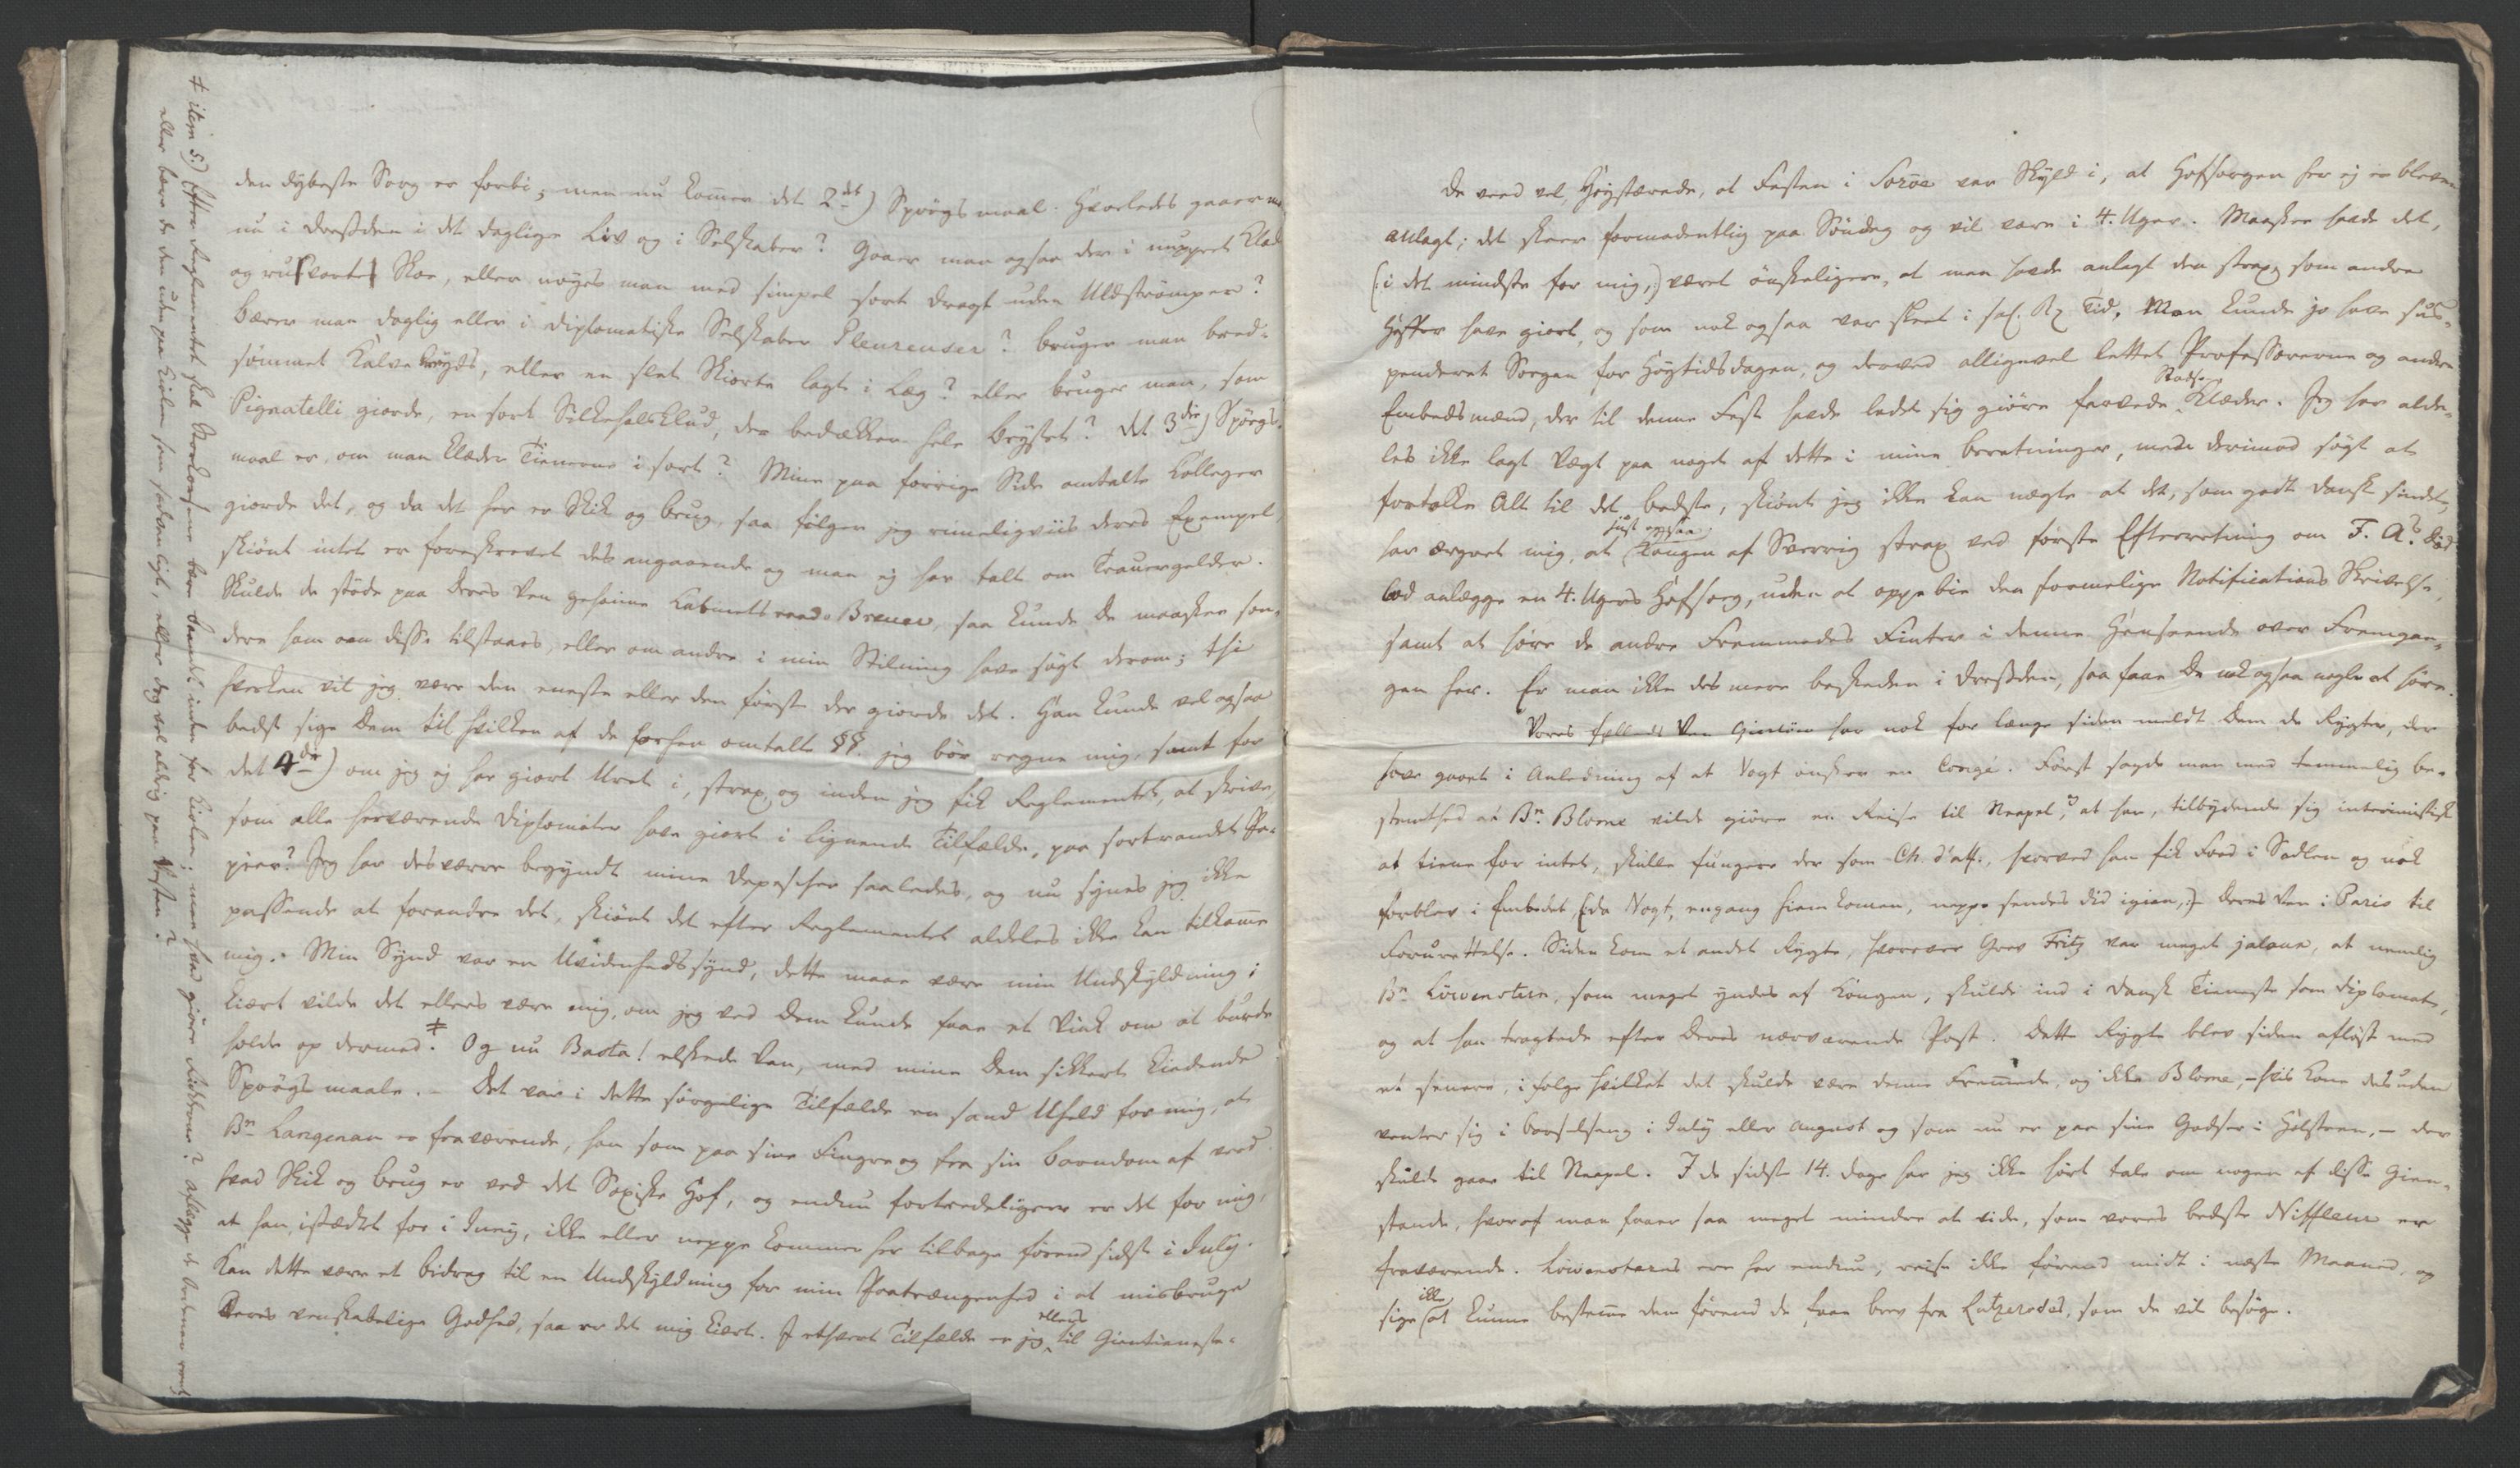 den dybeste Sorg er forbi; men nu kom̄er det 2det) Spörgsmaal. Hvorledes gaaer man
nu i Dresden i det daglige Liv og i Selskaber? Gaaer man ogsaa der i nuppret Klæde
og rusvorte Skoe, eller nøyes man med simpel sort Dragt uden Uldströmper?
Bærer man daglig eller i diplomatiske Selskaber Pleureuser? bruger man bred-
sömmet Kalvekryds, eller en slet Skiorte lagt i Læg? eller bruger man, som
Pignatelli giorde, en sort Silkehalsklud, der bedækker hele Brystet? Det 3die) Spörgs-
maal er, om man klæder Tienerne i sort? Mine paa forrige Side omtalte Colleger
giorde det, og da det her er Skik og brug, saa fölger jeg rimeligviis deres Exempel,
skiönt intet er foreskrevet des angaaende og man ej har talt om Trauergelder.
Skulde de stöde paa Deres Ven geheime Cabinetsraad Breuer, saa kunde De maaskee son-
dere ham om disse tilstaaes, eller om andre i min Stilning have sögt derom; thi
hverken vil jeg være den eneste eller den förste der giorde det. Han kunde vel ogsaa
bedst sige Dem til hvilken af de forhen omtalte §§. jeg bör regne mig, samt for
det 4de) om jeg ej har giort Uret i, strax, og inden jeg fik Reglementet, at skrive,
som alle herværende Diplomater have giort i lignende Tilfælde, paa sortrandet Pa-
pier? Jeg har desværre begyndt mine Depescher saaledes, og nu synes jeg ikke
passende at forandre det, skiönt det efter Reglementet aldeles ikke kan tilkom̄e
mig. Min Synd var en Uvidenhedssynd, dette maae være min Undskyldning;
kiært vilde det ellers være mig, om jeg ved Dem kunde faae et Vink om at burde
holde op dermed. ‡ Og nu Basta! elskede Ven, med mine Dem sikkert kiedende
Spörgsmaale. – Det var i dette sörgelige Tilfælde en sand Uheld for mig, at
Bn Langenau er fraværende, han som paa sine Fingre og fra sin Barndom af veed
hvad Skik og brug er ved det Saxiske Hof, og endnu fortredeligere er det for mig,
at han, istædet for i Juny, ikke eller neppe kommer her tilbage förend sidst i July.
Kan dette være et bidrag til en Undskyldning for min Paatrængenhed i at misbruge
Deres venskabelige Godhed, saa er det mig kiært. I ethvert Tilfælde er jeg ellers til Gientieneste.
‡ item 5.) Efter Reglementet skal bære Baandet inden for Kiolen; men hvad giöre Ridderne? aflægge de Ordenen reent
eller bære de den uden paa Kiolen som sædvanligt, eller dog vel aldrig paa Vesten?
De veed vel, Höystærede, at Festen i Soröe var Skyld i, at Hofsorgen her ej er bleven
anlagt; det skeer formodentlig paa Söndag og vil vare i 4. Uger. Maaskee havde det,
(i det mindste for mig,) været önskeligere, at man havde anlagt den strax, som andre
Hoffer have giort, og som nok ogsaa var skeet i sal. Rz Tid. Man kunde jo have sus-
penderet Sorgen for Höytidsdagen, og derved alligevel lettet Professorerne og andre
Embedsmænd, der til denne Fest havde ladet sig giöre farvede Stads Klæder. Jeg har alde-
les ikke lagt Vægt paa noget af dette i mine beretninger, men derimod sögt at
fortolke Alt til det bedste, skiönt jeg ikke kan nægte at det, som godt dansk sindet,
har ærgret mig, at just ogsaa Kongen af Sverrig strax ved förste Efterretning om F. As. Död
lod anlægge en 4. Ugers Hofsorg, uden at oppebie den formelige Notifications Skrivelse,
samt at höre de andre Fremmedes Finter i denne Henseende over Fremgan-
gen her. Er man ikke des mere beskeden i Dresden, saa faaer De nok ogsaa nogle at höre.
Vores fælleds Ven har nok for længe siden meldt Dem de Rygter, der
have gaaet i Anledning af at Vogt önsker en Congé. Först sagde man med temmelig be-
stemthed at Bn Blome vilde giöre en Reise til Neapel, og at han, tilbydende sig interimistisk
at tiene for intet, skulle fungere der som Ch. d'aff., hvorved han fik Fod i Sadlen og nok
forblev i Embedet, (da Vogt, engang hiemkommen, neppe sendes did igien,) Deres Ven i Paris til
Forurettelse. Siden kom et andet Rygte, hvorover Grev Fritz var meget jaloux, at nemlig
Bn Löwenstern, som meget yndes af Kongen, skulde ind i dansk Tieneste som Diplomat,
og at han tragtede efter Deres nærværende Post. Dette Rygte blev siden aflöst med
et senere, i fölge hvilket det skulde være denne Frem̄ede, og ikke Blome, – hvis Kone desuden
venter sig i barselseng i July eller August og som nu er paa sine Godser i Holsteen, – der
skulde gaae til Neapel. I de sidste 14. Dage har jeg ikke hört tale om nogen af disse Gien-
stande, hvoraf man faaer saa meget mindre at vide, som vores bedste Niffleur er
fraværende. Löwensterns ere her endnu, reise ikke förend midt i næste Maaned, og
sige ikke at kunne bestem̄e dem förend de faae brev fra Lutzerodes, som de vil besöge.